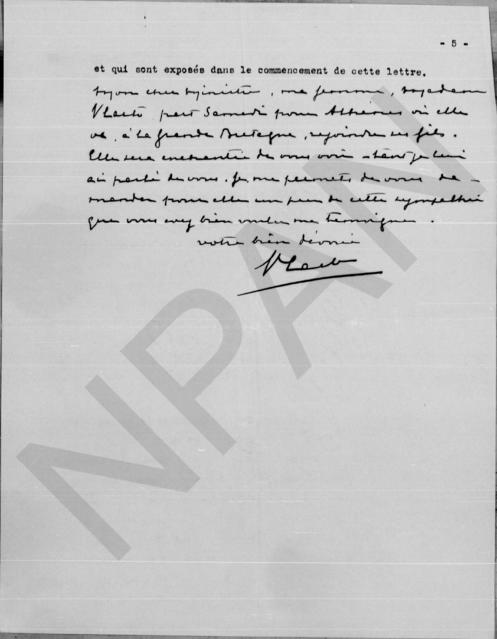 - 5 -
et qui sont exposés dans le commencement de cette lettre.
Mon cher Ministre, ma femme, Madame
Vlasto part Samedi pour Athènes où elle
va, à la Grande Bretagne, rejoindre ses fils.
Elle sera enchantée de vous voir
ai parlé de vous. Je me permets de vous de-
mander pour elle un peu de cette sympathie
que vous avez bien voulu me témoigner.
votre bien dévoué
Vlasto
NPAN